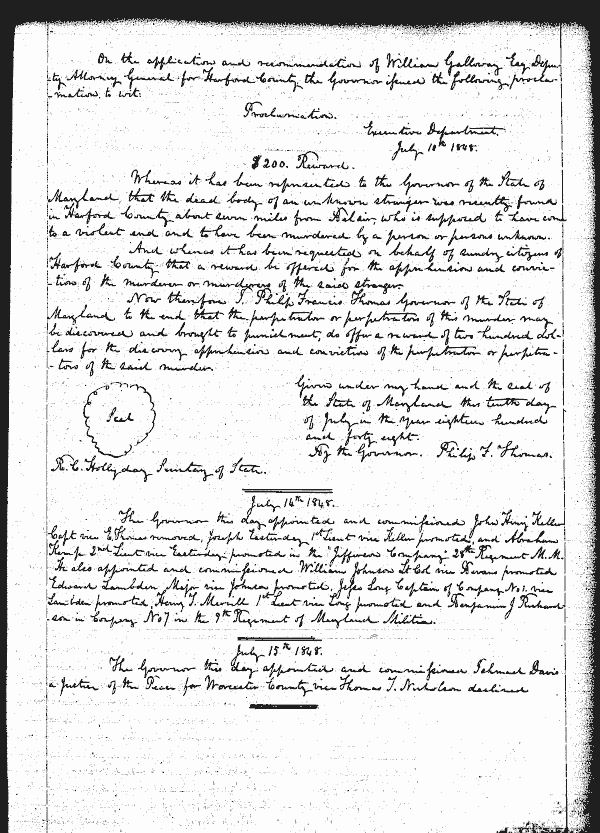 On the application and recommendation of William Galloway Esq Depu-
ty Attorney General for Harford County the Governor issued the following procla-
-mation, to wit:
Proclamation.
Executive Department.
July 10th 1848.
$200. Reward.
Whereas it has been represented to the Governor of the State of
Maryland, that the dead body of an unknown stranger was recently found
in Harford County about seven miles from Belair, who is supposed to have com
to a violent end and to have been murdered by a person or persons unknown.
And whereas it has been requested on behalf of sundry citizens of
Harford County that a reward be offered for the apprehension and convic-
-tion of the murderer or murderers of the said stranger.
Now therefore I, Philip Francis Thomas Governor of the State of
Maryland to the end that the perpetrator or perpetrators of this murder may
be discovered and brought to punishment, do offer a reward of two hundred dol-
lars for the discovery apprehension and conviction of the perpetrator or perpetra-
-tors of the said murder.
Given under my hand and the seal of
the State of Maryland this tenth day
of July in the year eighteen hundred
and forty eight.
Seal
By the Governor. Philip F. Thomas.
R. C. Hollyday Secretary of State.
July 14th 1848.
The Governor this day appointed and commissioned John Henry Keller
Capt vice E. Thomas removed, Joseph Easterday 1st Lieut vice Keller promoted, and Abraham
Kemp 2nd Lieut vice Easterday promoted in the "Jefferson Company" 28th Regiment M. M.
He also appointed and commissioned William Johnson Lt Col vice promoted
Edward Lambden Major vice Johnson promoted, Jesse Long Captain of Company No 1. vice
Lambden promoted, Henry T. Merrill 1st Lieut vice Long promoted and Benjamin J Richard
-son in Company No 7 in the 9th Regiment of Maryland Militia.
July 15th 1848.
The Governor this day appointed and commissioned Davis
a Justice of the Peace for Worcester County vice Thomas T. Nicholson declined